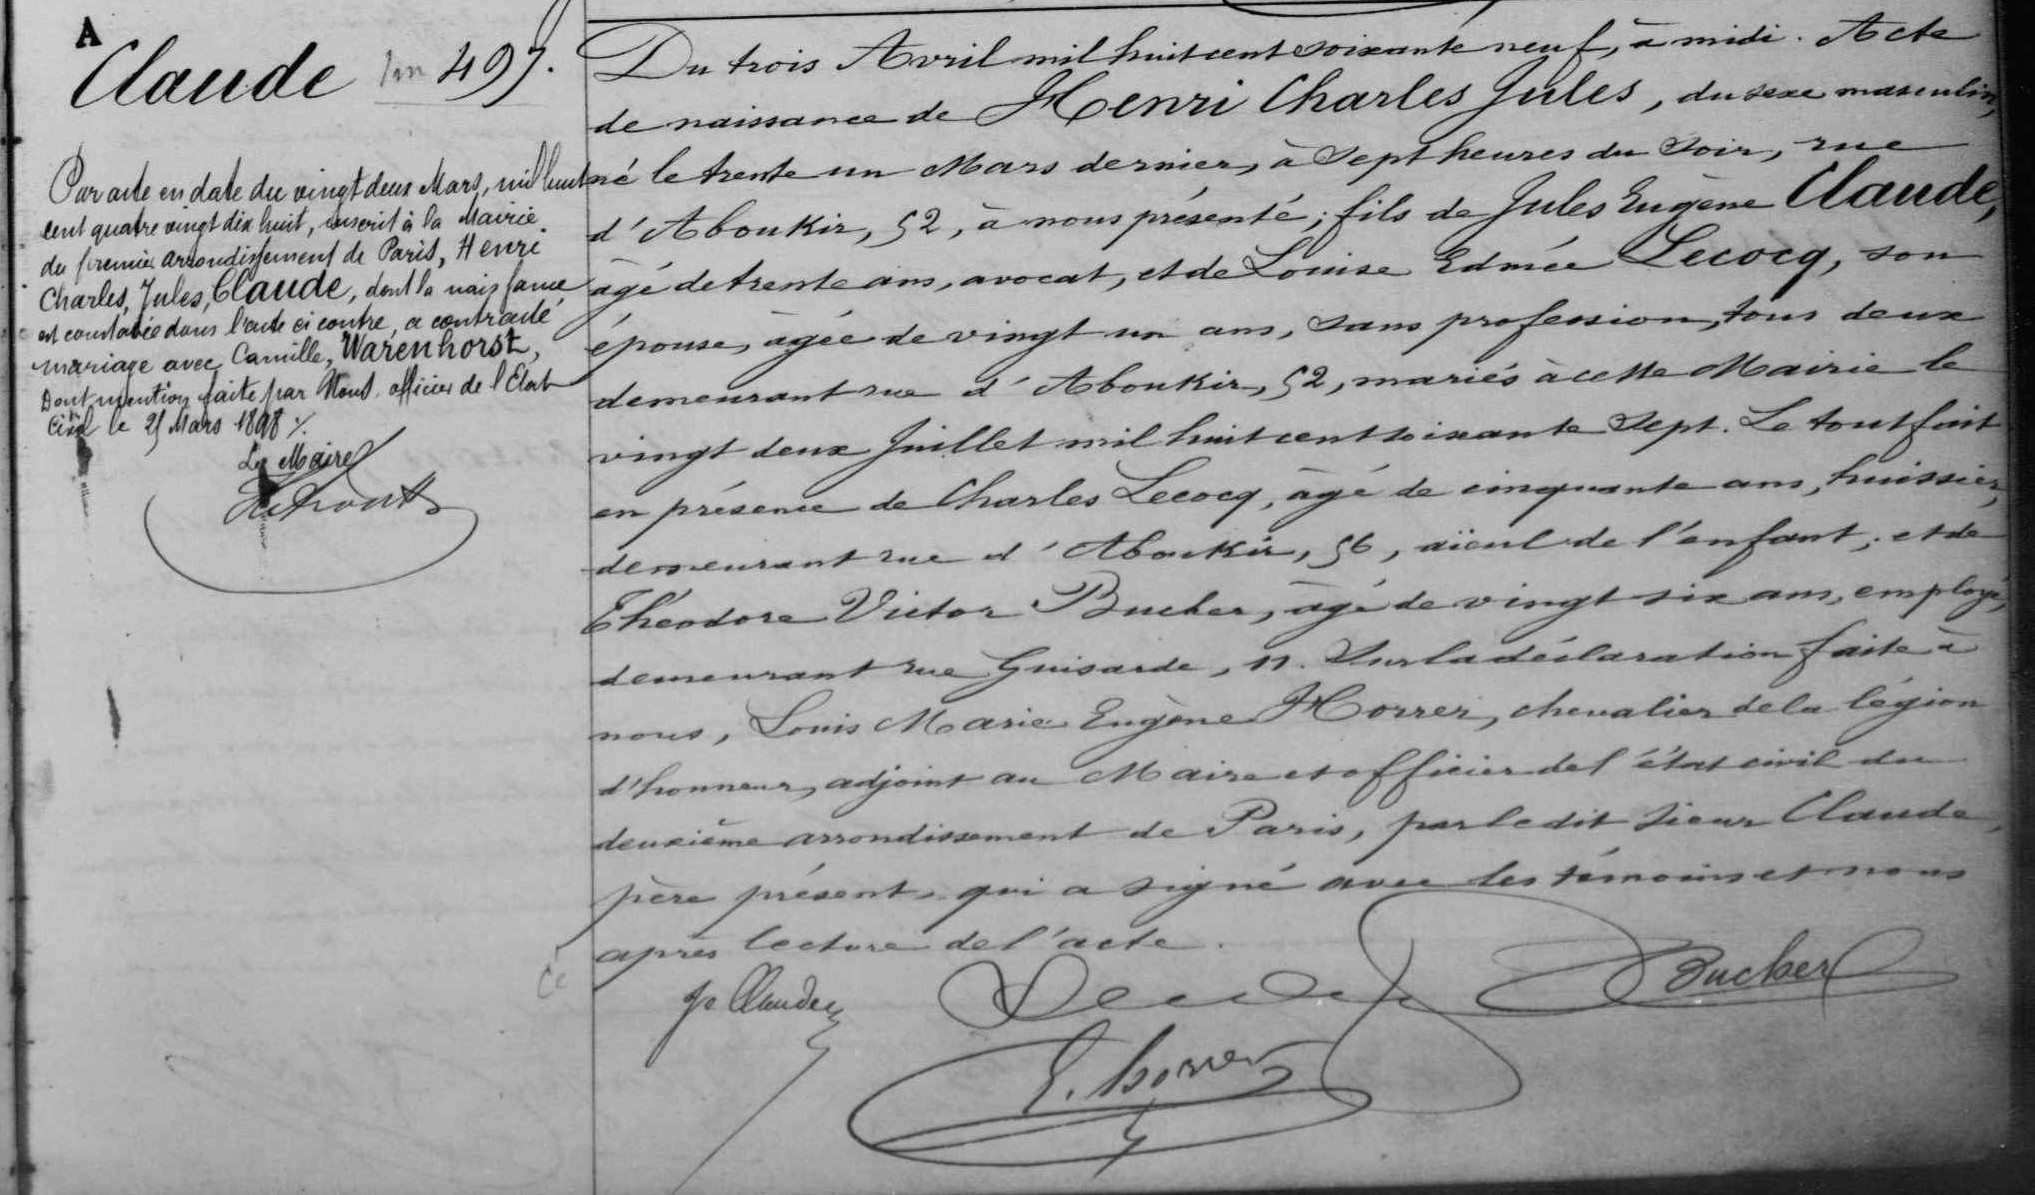 A
Claude 497.
Par acte en date du vingt deux Mars, mil huit
cent quatre vingt dix huit, inscrit à la Mairie
du premier arrondissement de Paris, Henri
Charles, Jules, Claude, dont la naissance
est constatée dans l'acte ci contre, a contracté
mariage avec Camille, Warenhorst,
Dont mention faite par Nous, officier de l'Etat
Civil le 25 Mars 1898 ./.
Le Maire
Du trois Avril mil huit cent soixante neuf, à midi. Acte
de naissance de Henri Charles Jules, du sexe masculin,
né le trente un Mars dernier, à Sept heures du Soir, rue
d'Aboukir, 52, à nous présenté; fils de Jules Eugène Claude,
âgé de trente ans, avocat, et de Louise Edmée Lecocq, son
épouse, âgée de vingt un ans, Sans profession, tous deux
demeurant rue d'Aboukir, 52, mariés à cette Mairie le
vingt deux Juillet mil huit cent soixante Sept. Le tout fait
en présence de Charles Lecocq, âgé de cinquante ans, huissier,
demeurant rue d'Aboukir, 56, aïeul de l'enfant; et de
Théodore Victor Bucher, âgé de vingt six ans, employé,
demeurant rue Guisarde, 11. Sur la déclaration faite à
nous, Louis Marie Eugène Horrer, chevalier de la légion
d'honneur, adjoint au Maire et officier de l'état civil du
deuxième arrondissement de Paris, par le dit Sieur Claude,
père présent, qui a signé avec les témoins et nous
après lecture de l'acte.
Je Claude
Bucher
E. horrer